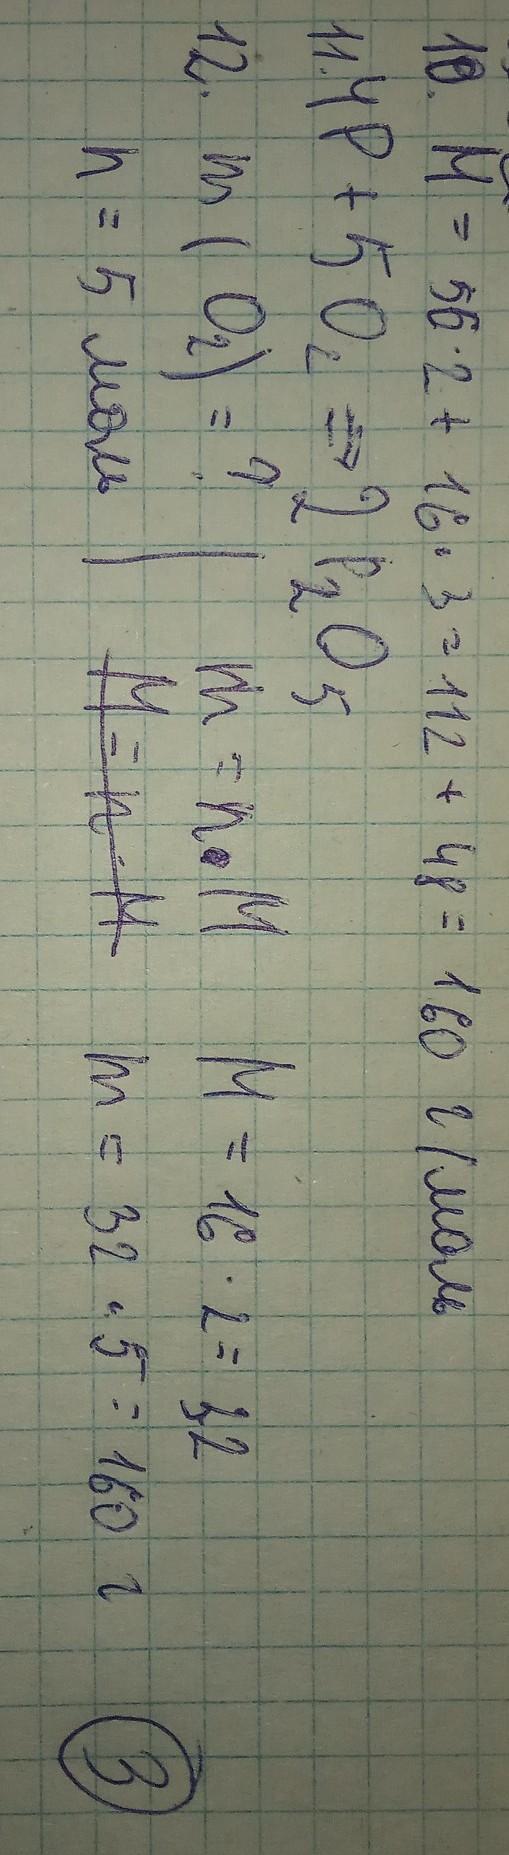 10. M = 56·2 + 16·3 = 112 + 48 = 160 г/моль
11. 4P + 5O₂ ⇒ 2P₂O₅
12. m(O₂) = ? m = n·M M = 16·2 = 32
n = 5 моль M = n·M m = 32·5 = 160 г
3